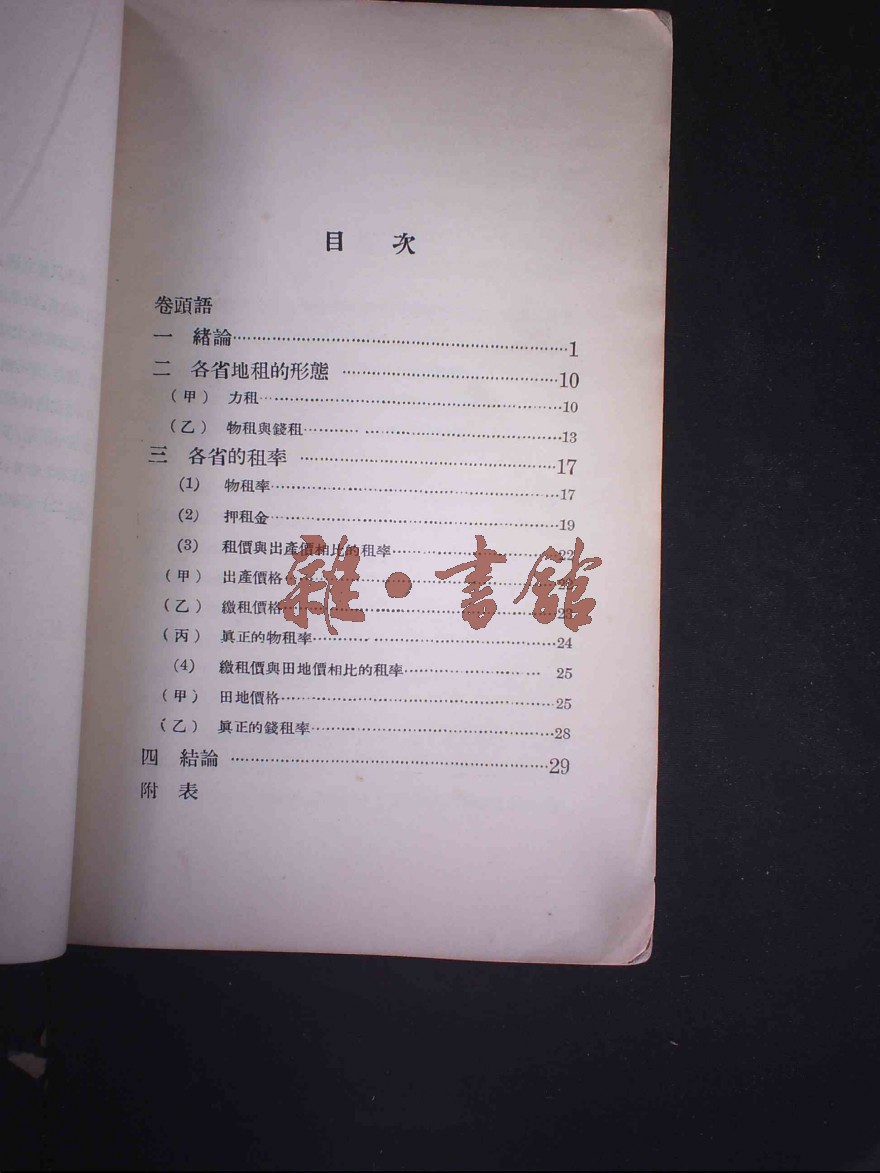 目 次
卷頭語
一 緒論……1
二 各省地租的形態……10
（甲） 力租……10
（乙） 物租與錢租……13
三 各省的租率……17
(1) 物租率……17
(2) 押租金……19
(3) 租價與出產價相比的租率……22
（甲） 出產價格……22
（乙） 繳租價格……23
（丙） 眞正的物租率……24
(4) 繳租價與田地價相比的租率…… 25
（甲） 田地價格……25
（乙） 眞正的錢租率……28
四 結論……29
附 表
雜·書館